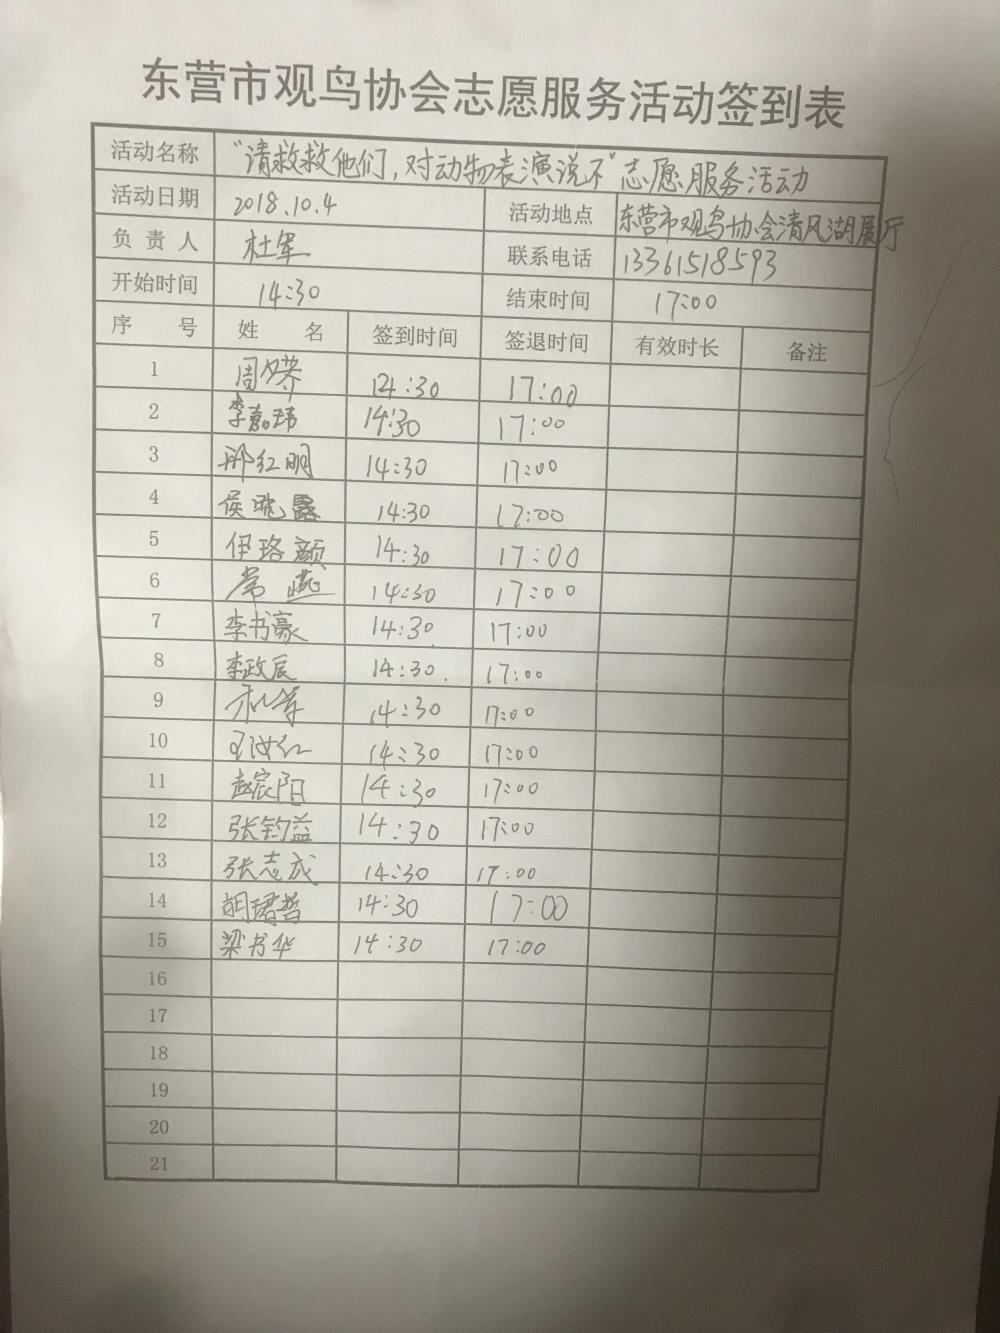 东营市观鸟协会志愿服务活动签到表
活动名称 “请救救他们,对动物表演说不”志愿服务活动
活动日期 2018.10.4 活动地点 东营市观鸟协会清风湖展厅
负责人 杜军 联系电话 13361518593
开始时间 14:30 结束时间 17:00
序号 姓名 签到时间 签退时间 有效时长 备注
1 14:30 17:00
2 李嘉玮 14:30 17:00
3 邢红明 14:30 17:00
4 侯晓露 14:30 17:00
5 伊珞颜 14:30 17:00
6 常燕 14:30 17:00
7 李书豪 14:30 17:00
8 李政辰 14:30 17:00
9 14:30 17:00
10 14:30 17:00
11 赵宸阳 14:30 17:00
12 张钧益 14:30 17:00
13 张志成 14:30 17:00
14 胡珺哲 14:30 17:00
15 梁书华 14:30 17:00
16
17
18
19
20
21